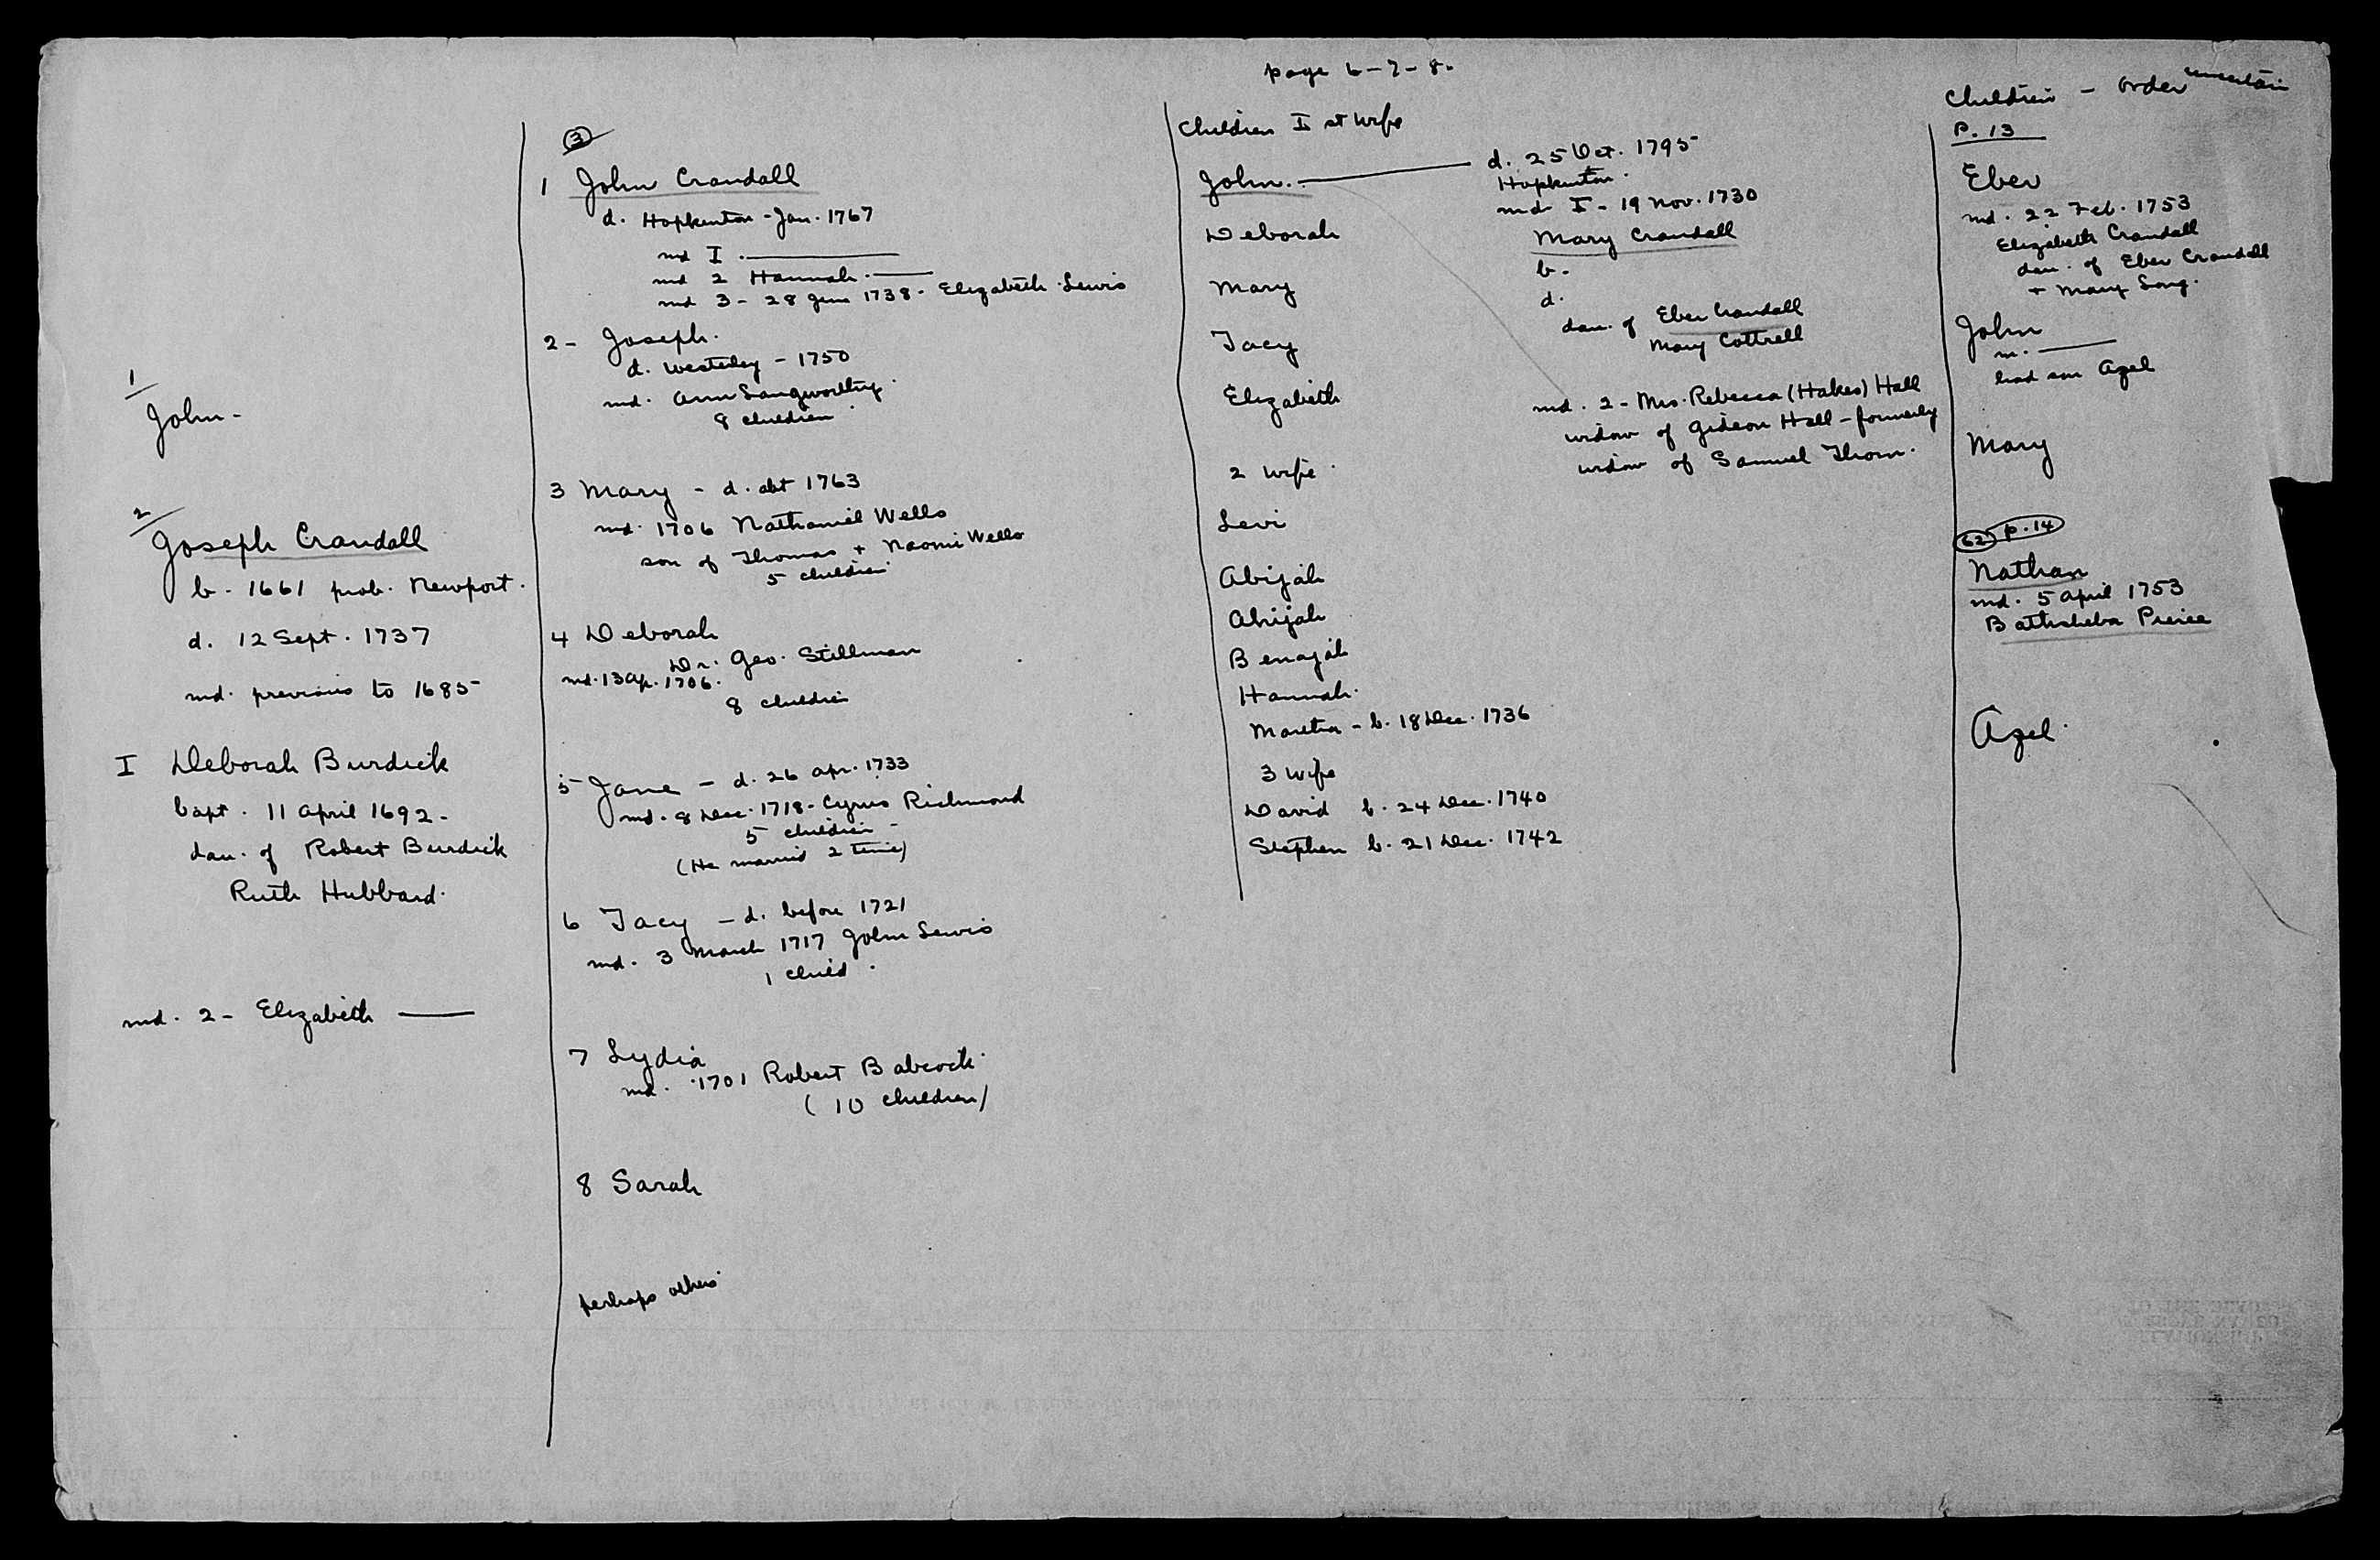 page 6-7-8.
1
John -
2
Joseph Crandall
b. 1661 prob. Newport.
d. 12 Sept. 1737
md. previous to 1685
I Deborah Burdick
bapt. 11 April 1692.
dau. of Robert Burdick
Ruth Hubbard.
md. 2 - Elizabeth ——
3
1 John Crandall
d. Hopkinton - Jan. 1767
md I. ——
md 2 Hannah. ——
md 3 - 28 June 1738 - Elizabeth Lewis
2 - Joseph.
d. Westerley - 1750
md. Ann Langworthy.
8 children
3 Mary - d. abt 1763
md. 1706 Nathaniel Wells
son of Thomas + Naomi Wells
5 children
4 Deborah
Dr. Geo. Stillman
md. 13 Ap. 1706.
8 children
5 Jane - d. 26 Apr. 1733
md. 8 Dec. 1718 - Cyrus Richmond
5 children -
(He married 2 time)
6 Tacy - d. before 1721
md. 3 March 1717 John Lewis
1 child.
7 Lydia
md. 1701 Robert Babcock
(10 children)
8 Sarah
perhaps others
Children I st Wife
John. ——
Deborah
Mary
Tacy
Elizabeth
2 Wife.
Levi
Abijah
Ahijah
Benajah
Hannah.
Martha - b. 18 Dec. 1736
3 Wife
David b. 24 Dec. 1740
Stephen b. 21 Dec. 1742
d. 25 Oct. 1795
Hopkinton.
md I - 19 Nov. 1730
Mary Crandall
b.
d.
dau. of Eber Crandall
Mary Cottrell
md. 2 - Mrs. Rebecca (Hakes) Hall
widow of Gideon Hall - formerly
widow of Samuel Thorn.
Children - Order uncertain
P. 13
Eber
md. 22 Feb. 1753
Elizabeth Crandall
dau. of Eber Crandall
+ Mary Lang.
John
m. ——
had son Azel
Mary
62 p. 14
Nathan
md. 5 April 1753
Bathsheba Pierce
Azel.